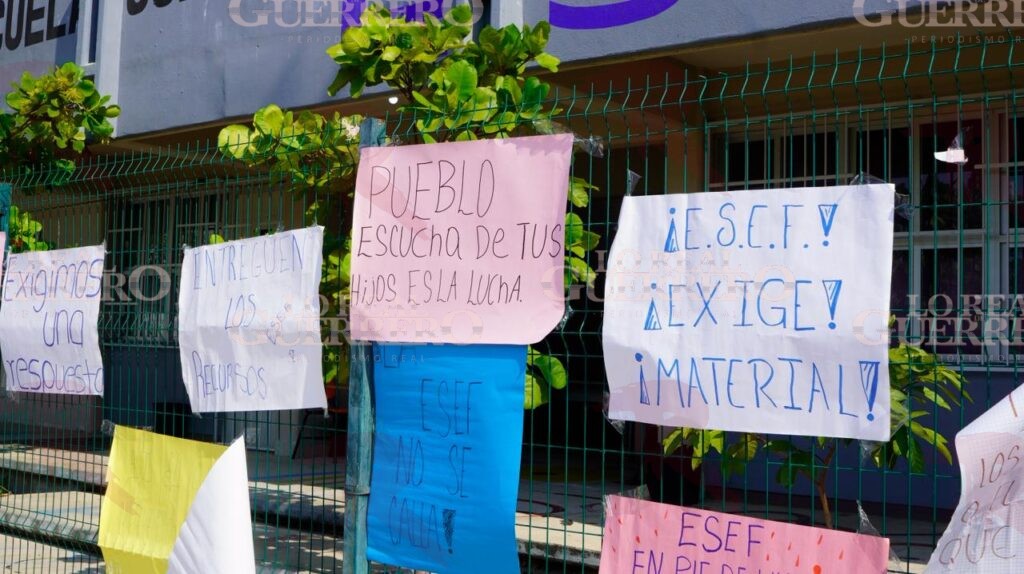 CUELA
GUERRERO
GUERRERO
PUEBLO
ESCUCHA DE TUS
HIJOS ES LA LUCHA.
¡E.S.E.F.!
¡EXIGE!
¡MATERIAL!
EXIGIMOS
una
respuesta
ENTREGUEN
LOS
RECURSOS
ESEF
NO SE
CALLA!
ESEF
EN PIE DE
LOS
QUE
LO REA
GUERRERO